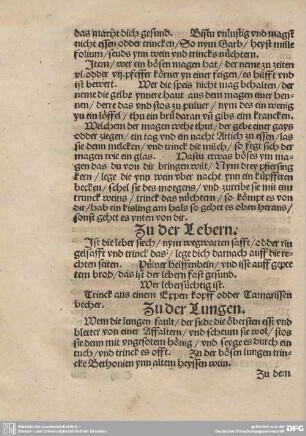 das macht dich gesund. Bistu vnlustig vnd magst
nicht essen odder trincken / So nym Garb / heyst mille
folium / seuds ynn wein vnd trincks nüchtern.
Item / wer ein bösen magen hat / der neme zu zeiten
vi. odder vij. pfeffer körner yn einer feigen / es hülfft vnd
ist bewert. Wer die speis nicht mag behalten / der
neme die gelbe ynnere haut aus dem magen einer hen-
nen / derre das vnd stos zu puluer / nym des ein wenig
yn ein löffel / thu ein brü daran vñ gibs eim krancken.
Welchem der magen wehe thut / der gebe einer gays
odder ziegen / ein tag vnd ein nacht Attich zu essen / las
sie denn melcken / vnd trinck die milch / so fegt sich der
magen wie ein glas. Hastu etwas böses ym ma-
gen das du von dir bringen wilt / Nym drey pfiersing
kern / lege die ynn wein vber nacht ynn ein küpfferen
becken / schel sie des morgens / vnd zureibe sie mit eim
trunck weins / trinck das nüchtern / so kömpt es von
dir / hab ein kisling am hals so gehet es oben heraus /
sonst gehet es vnten von dir.
Zu der Lebern.
Ist die leber siech / nym wegwarten safft / odder rin
gelsafft vnd trinck das / lege dich darnach auff die re-
chten seiten. Pülver helffenbein / vnd isse auff gepee
tem brod / das ist der lebern fast gesund.
Wer lebersüchtig ist.
Trinck aus einem Eppen kopff odder Tamarissen
becher.
Zu der Lungen.
Wem die lungen fault / der siede die öbersten est vnd
bletter von einer Affaltern / vnd scheum sie wol / stos
sie denn mit vngesotem hönig / vnd seyge es durch ein
tuch / vnd trinck es offt. Zu der bösen lungen trin-
cke Bethonien ynn altem heyssen wein.
Zu dem